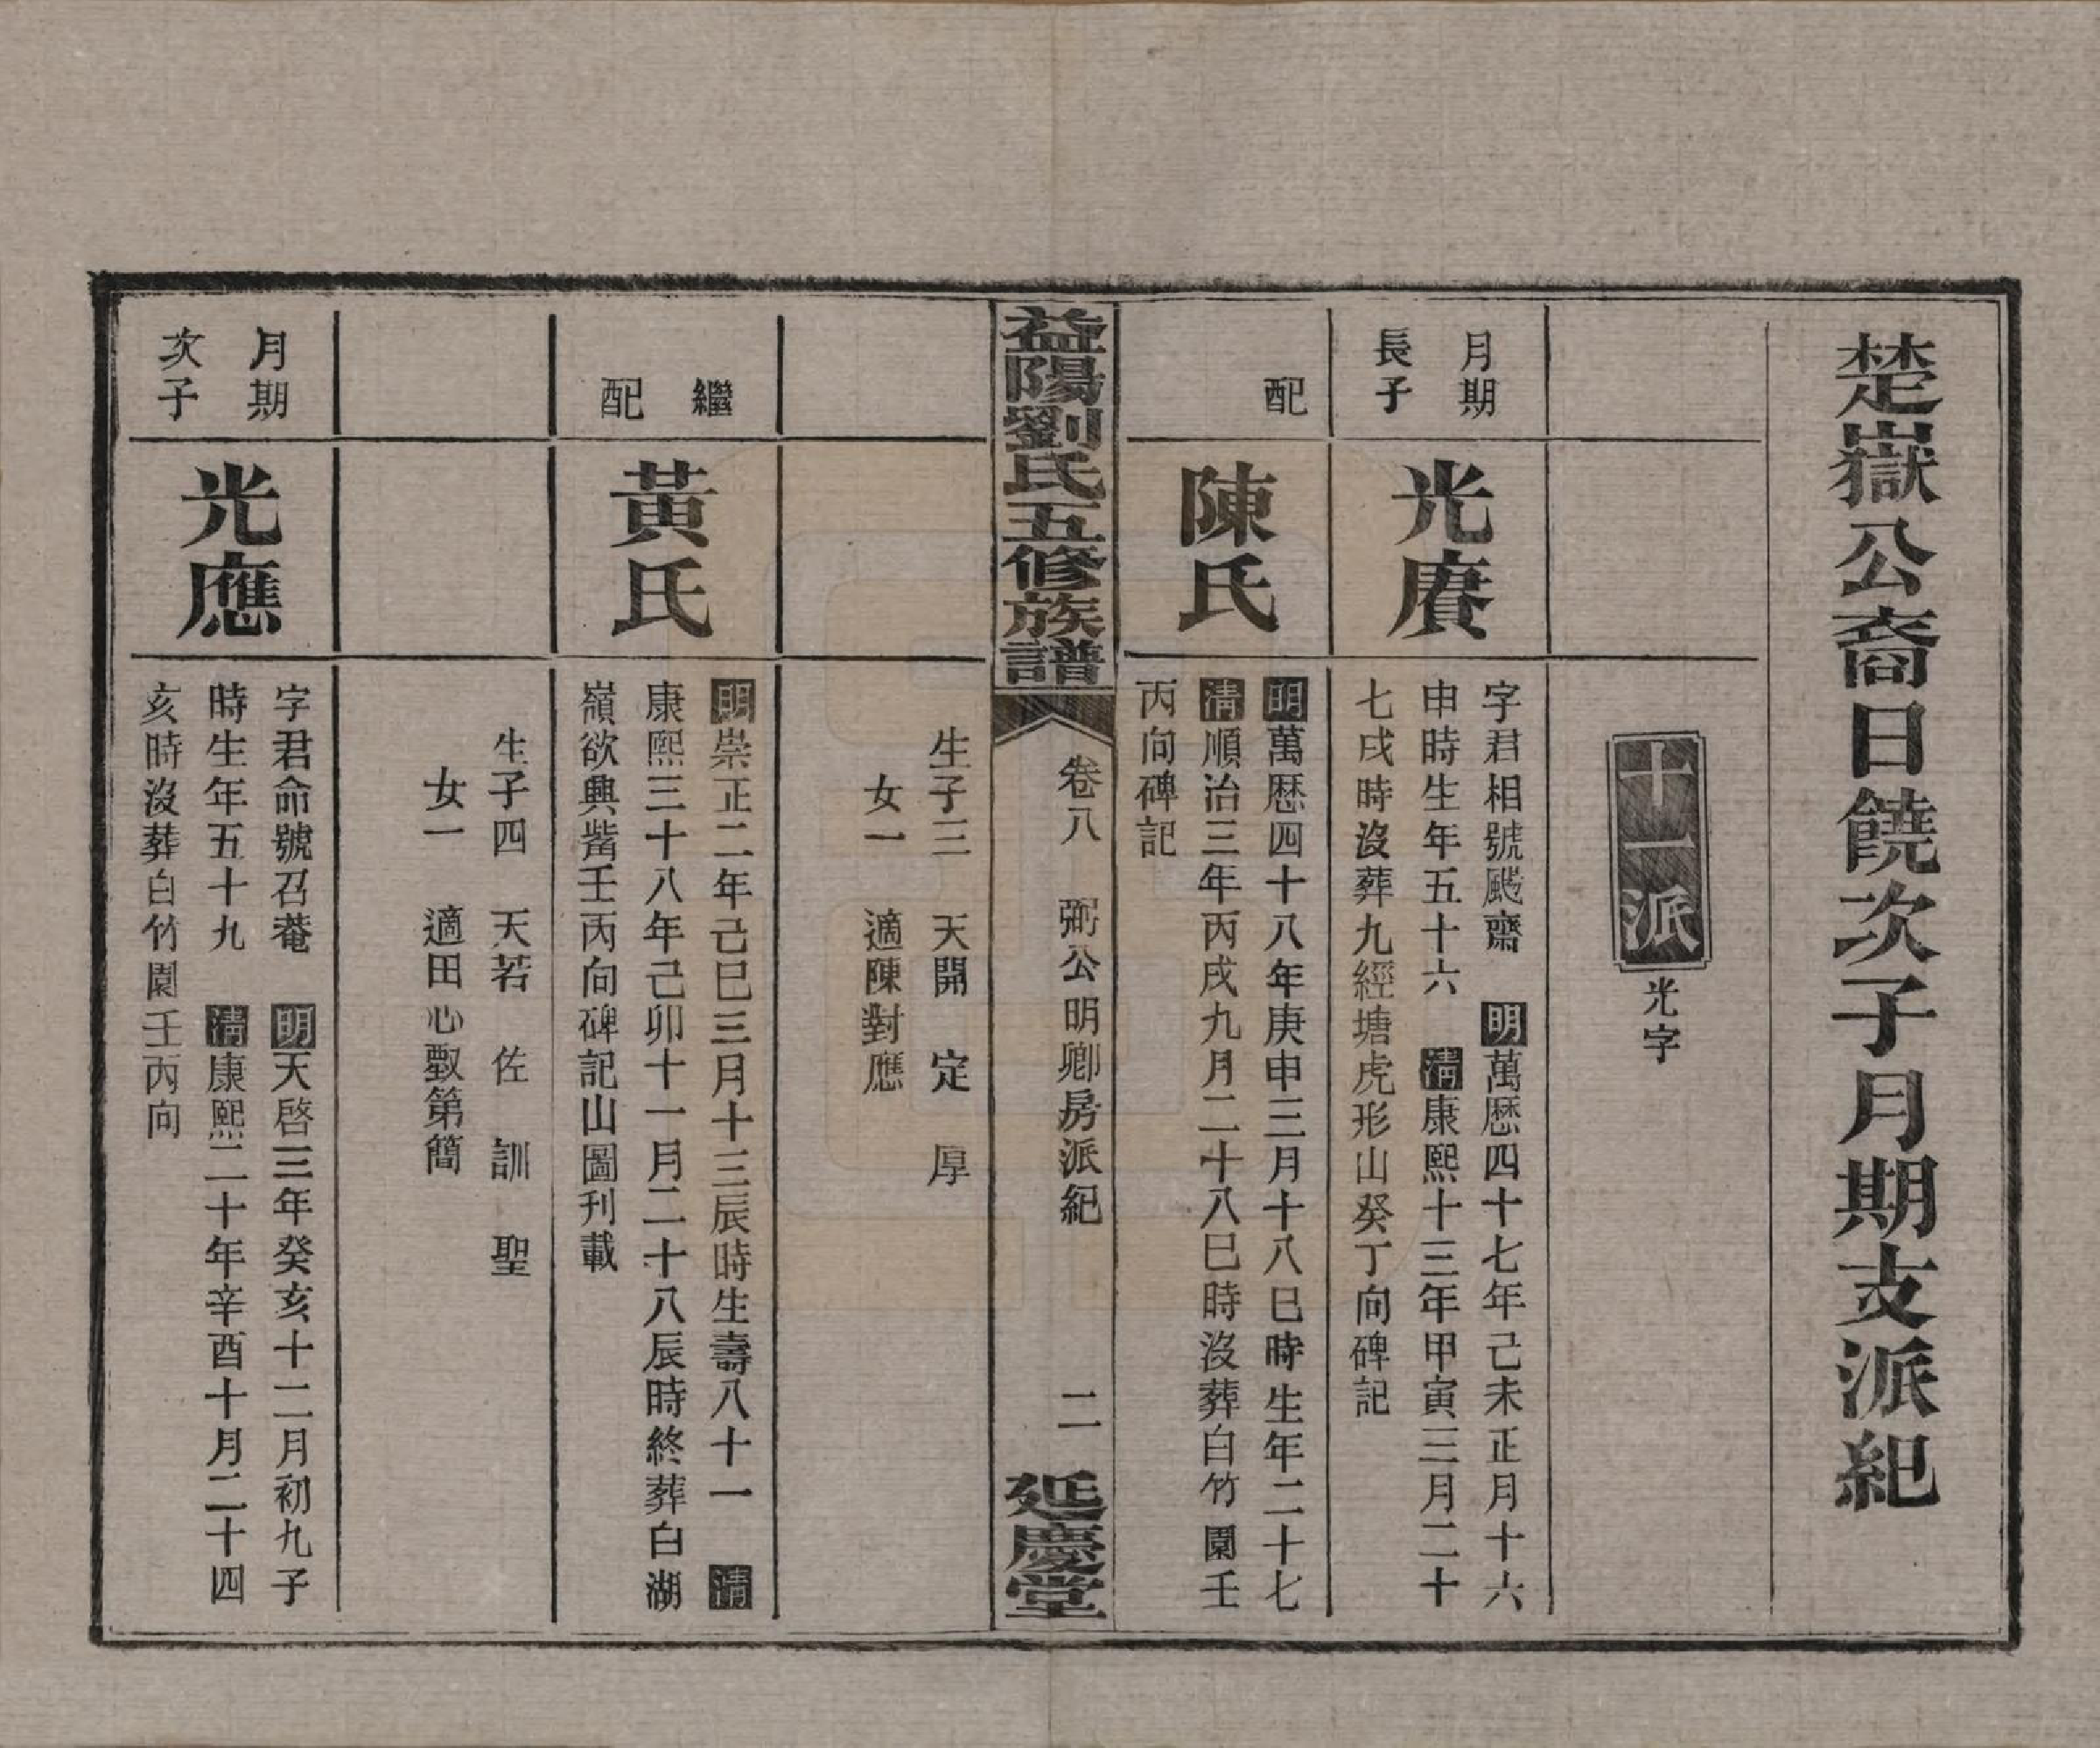 楚嶽公裔日饒次子月期支派紀
十一派
光字
月期
長子
光賡
字君相號颺齋 明萬歷四十七年己未正月十六
申時生年五十六 清康熙十三年甲寅三月二十
七戌時沒葬九經塘虎形山癸丁向碑記
配
陳氏
明萬歷四十八年庚申三月十八巳時生年二十七
清順治三年丙戌九月二十八巳時沒葬白竹園壬
丙向碑記
益陽劉氏五修族譜
卷八 弼公明卿房派紀
二
延慶堂
生子三 天開 定 厚
女一 適陳對應
繼
配
黃氏
明崇正二年己巳三月十三辰時生壽八十一 清
康熙三十八年己卯十一月二十八辰時終葬白湖
嶺欲興嘴壬丙向碑記山圖刊載
生子四 天若 佐 訓 聖
女一 適田心甄第簡
月期
次子
光應
字君命號召菴 明天啓三年癸亥十二月初九子
時生年五十九 清康熙二十年辛酉十月二十四
亥時沒葬白竹園壬丙向